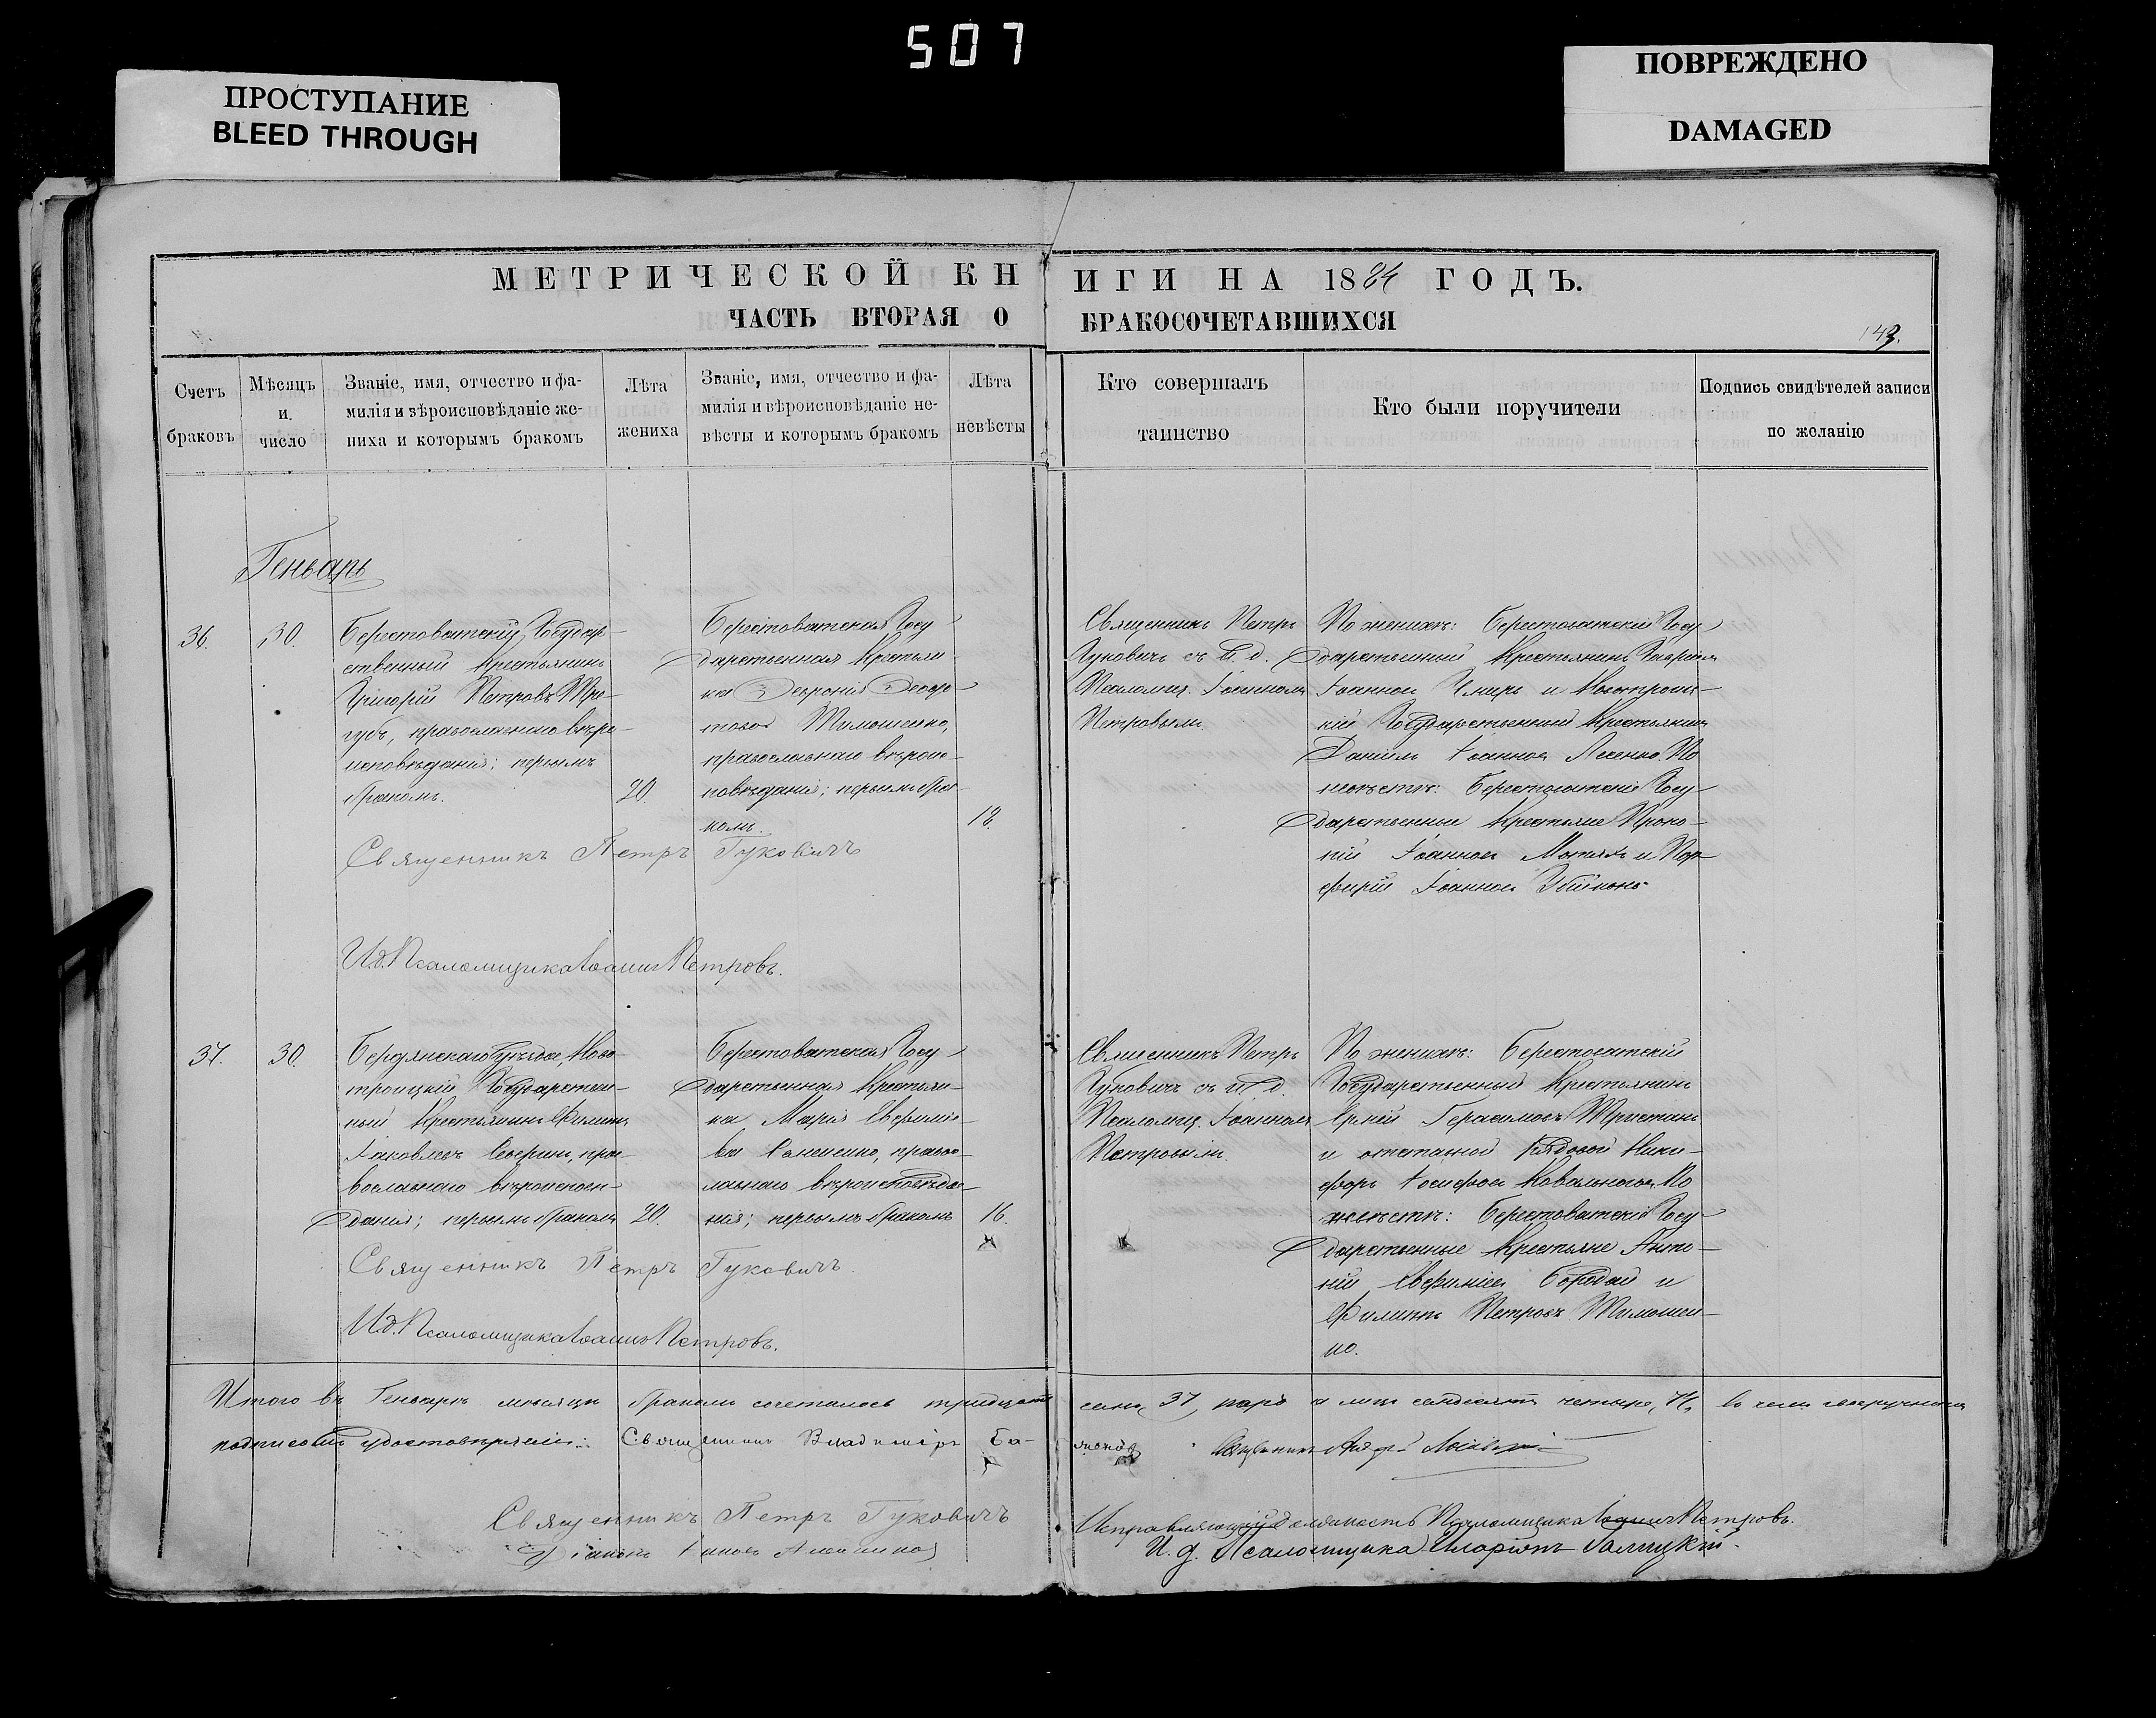 507
ПРОСТУПАНИЕ
BLEED THROUGH
ПОВРЕЖДЕНО
DAMAGED
МЕТРИЧЕСКОЙ КНИГИ НА 1884 ГОДЪ.
ЧАСТЬ ВТОРАЯ О БРАКОСОЧЕТАВШИХСЯ
143.
Счетъ
браковъ
Мѣсяцъ
и
число
Званіе, имя, отчество и фа-
милія и вѣроисповѣданіе же-
ниха и которымъ бракомъ
Лѣта
жениха
Званіе, имя, отчество и фа-
милія и вѣроисповѣданіе не-
вѣсты и которымъ бракомъ
Лѣта
невѣсты
Кто совершалъ
таинство
Кто были поручители
Подпись свидѣтелей записи
по желанію
Генварь
36.
30.
Берестоватскій Государ-
ственный Крестьянинъ
Григорій Петровъ
православнаго вѣро-
исповѣданія; первымъ
бракомъ.
20.
Берестоватская Госу-
дарственная Крестьян-
ка
Тимошенко,
православнаго вѣроис-
повѣданія; первымъ бра-
комъ.
18.
Священникъ Петръ
Гуковичъ съ И. д.
Псаломщ. Іоанномъ
Петровымъ.
По женихѣ: Берестоватскій Госу-
дарственный Крестьянинъ Гавріилъ
Іоанновъ и Новотроиц-
кій Государственный Крестьянинъ
Даніилъ Іоанновъ По
невѣстѣ: Берестоватскіе Госу-
дарственные Крестьяне Проко-
пій Іоанновъ и Пор-
фирій Іоанновъ
Священникъ Петръ Гуковичъ
И.д. Псаломщика Іоаннъ Петровъ.
37.
30.
Бердянскаго уѣзда, Ново-
троицкій Государствен-
ный Крестьянинъ Филиппъ
Іаковлевъ Северинъ, пра-
вославнаго вѣроисповѣ-
данія; первымъ бракомъ
20.
Берестоватская Госу-
дарственная Крестьян-
ка Марія Евфиміе-
ва правос-
лавнаго вѣроисповѣда-
нія; первымъ бракомъ
16.
Священникъ Петръ
Гуковичъ съ И. д.
Псаломщ. Іоанномъ
Петровымъ.
По женихѣ: Берестоватскій
Государственный Крестьянинъ
Герасимовъ
и отставной рядовой Ники-
форъ Іосифовъ По
невѣстѣ: Берестоватскіе Госу-
дарственные Крестьяне Анто-
ній Евфиміевъ Бородай и
Филиппъ Петровъ Тимошен-
ко.
Священникъ Петръ Гуковичъ.
И.д. Псаломщика Іоаннъ Петровъ.
Итого въ Генварѣ мѣсяцѣ бракомъ сочеталось тридцать семь, 37, паръ а лицъ семьдесятъ четыре, 74, въ чемъ своеручнымъ
подписомъ удостовѣряемъ: Священникъ Владиміръ Священникъ
Священникъ Петръ Гуковичъ
Исправляющій должность Псаломщика Іоаннъ Петровъ.
Діаконъ
И. д. Псаломщика Иларіонъ Галицкій.